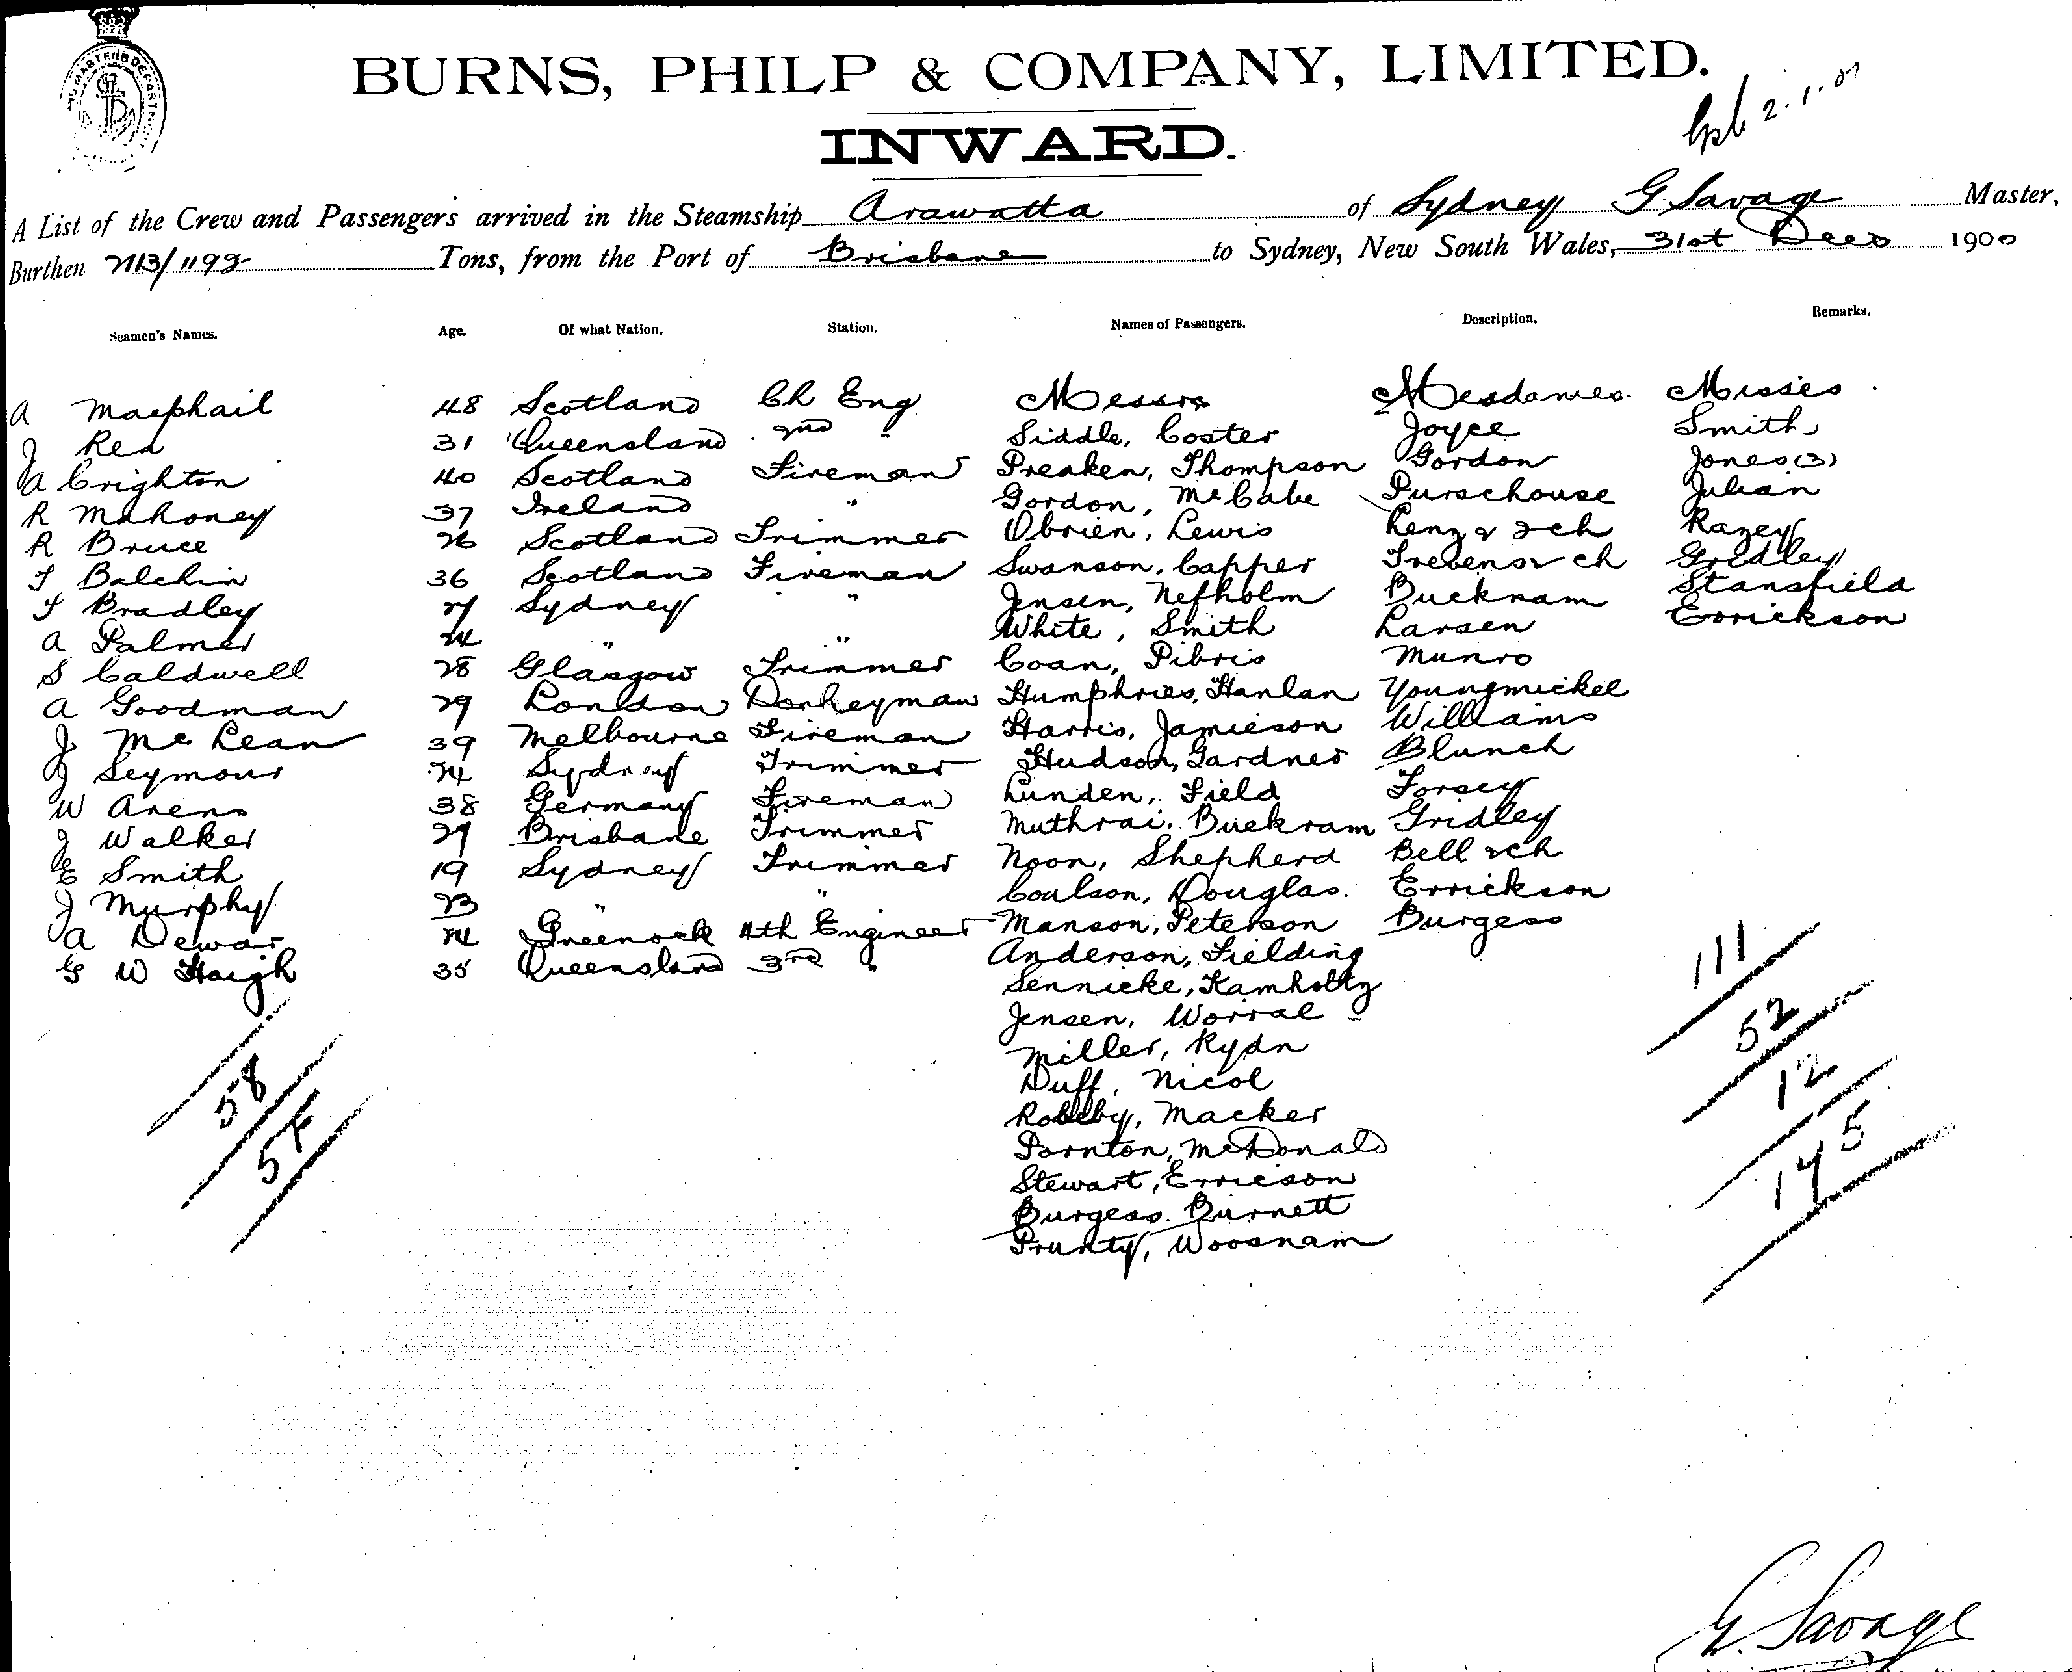 BURNS, PHILP & COMPANY, LIMITED.
2.1.01
INWARD.
A List of the Crew and Passengers arrived in the Steamship Arawatta of Sydney G Savage Master,
Burthen 2113/1193 Tons, from the Port of Brisbane to Sydney, New South Wales, 31st Decr 1900
Seamen's Names. Age. Of what Nation. Station. Names of Passengers. Description. Remarks.
A Macphail 48 Scotland Ch Eng Messrs Mesdames Misses
J Rea 31 Queensland 2nd " Siddle, Coster Joyce Smith
A Crighton 40 Scotland Fireman Preaken, Thompson Gordon Jones (3)
R Mahoney 37 Ireland " Gordon, McCabe Purschouse Julian
R Bruce 26 Scotland Trimmer Obrien, Lewis Renz & 2 ch Razey
T Balchin 36 Scotland Fireman Swanson, Capper Trevenor ch Gridley
T Bradley 27 Sydney " Jensen, Nefholm Bucknam Stansfield
A Palmer 24 " " White, Smith Larsen Errickson
S Caldwell 28 Glasgow Trimmer Coan, Pibris Munro
A Goodman 29 London Donkeyman Humphries, Hanlan Youngmickel
J McLean 39 Melbourne Fireman Harris, Jamieson Williams
J Seymour 24 Sydney Trimmer Hudson, Gardner Blunch
W Arens 38 Germany Fireman Lunden, Field Forsey
J Walker 27 Brisbane Trimmer Muthrai, Buckram Gridley
E Smith 19 Sydney Trimmer Noon, Shepherd Bell & ch
J Murphy 23 " " Coulson, Douglas Errickson
A Dewar 24 Greenock 4th Engineer Manson, Peterson Burgess
G W Haigh 35 Queensland 3rd " Anderson, Fielding
Sennicke, Kamholtz
Jensen, Worral
Miller, Rydn
Duff, Nicol
Robby, Macker
Pornton, McDonald
Stewart, Erricson
Burgess, Burnett
Prunty, Woosnam
111
52
12
175
58
57
G. Savage